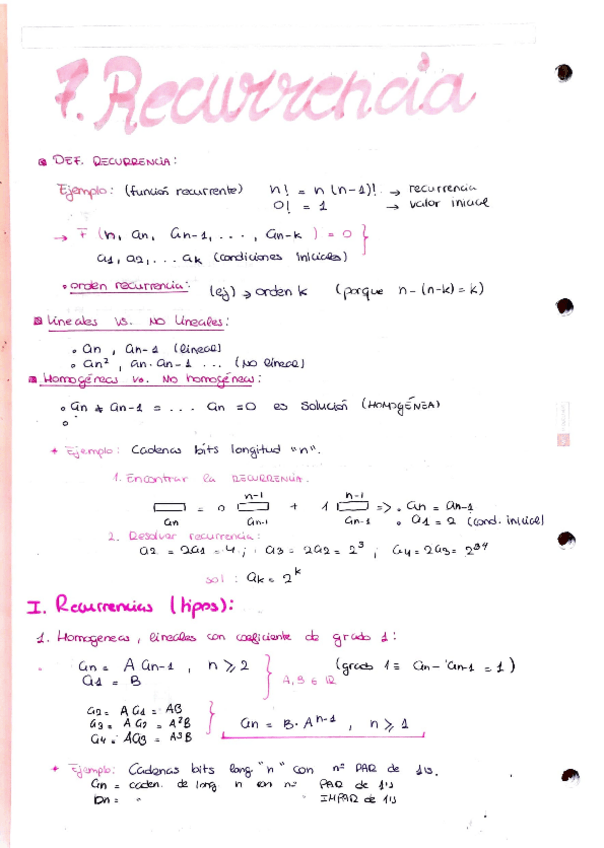 7. Recurrencia
DEF. RECURRENCIA:
Ejemplo: (función recurrente) n! = n (n-1)! → recurrencia
0! = 1 → valor inicial
→ F (n, an, an-1, ..., an-k) = 0
a1, a2, ... ak (condiciones iniciales)
• orden recurrencia: (ej) → orden k (porque n - (n-k) = k)
Lineales vs. NO lineales:
• an, an-1 (lineal)
• an², an·an-1 ... (No lineal)
Homogéneas vs. No homogéneas:
• an + an-1 = ... an = 0 es solución (HOMOGÉNEA)
* Ejemplo: Cadenas bits longitud "n".
1. Encontrar la RECURRENCIA.
n-1 n-1
= 0 + 1 => • an = an-1
an an-1 an-1 • a1 = 2 (cond. inicial)
2. Resolver recurrencia:
a2 = 2a1 = 4; a3 = 2a2 = 2³; a4 = 2a3 =
sol: ak = 2^k
I. Recurrencias (tipos):
1. Homogeneas, lineales con coeficiente de grado 1:
an = A an-1, n ≥ 2 (grado 1 ≡ an - an-1 = 1)
a1 = B A, B ∈ ℝ
a2 = A a1 = AB
a3 = A a2 = A²B an = B·A^n-1, n ≥ 1
a4 = A a3 = A³B
* Ejemplo: Cadenas bits long. "n" con nº PAR de 1's.
an = caden. de long. n con nº PAR de 1's
bn = " IMPAR de 1's